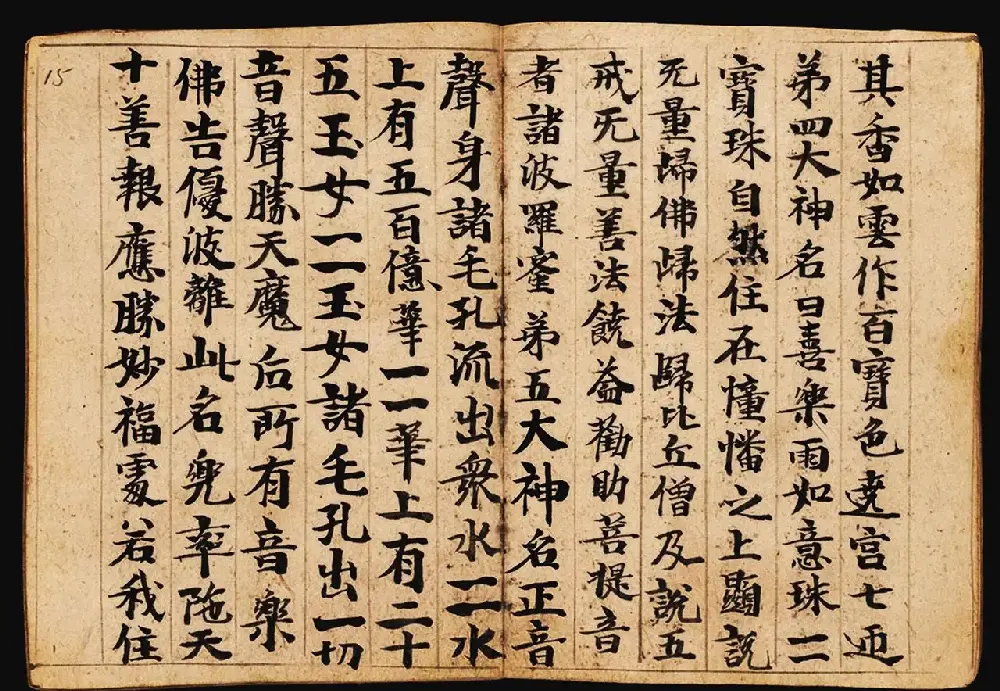 其香如雲作百寶色遶宫七迊
弟四大神名曰喜樂雨如意珠一一
寶珠自然住在憧幡之上顯說
无量歸佛歸法歸比丘僧及說五
戒无量善法饒益勸助菩提音
者諸波羅蜜弟五大神名正音
聲身諸毛孔流出衆水一一水
上有五百億華一一華上有二十
五玉女一一玉女諸毛孔出一切
音聲勝天魔后所有音樂
佛告優波離此名兜率陁天
十善報應勝妙福處若我住
15